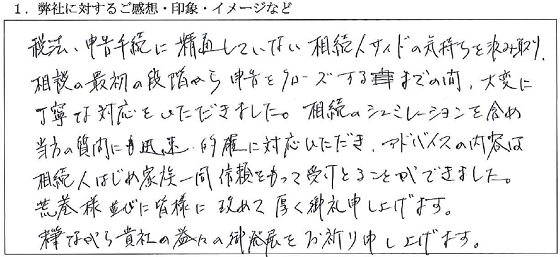 1．弊社に対するご感想・印象・イメージなど
税法、申告手続に精通していない相続人サイドの気持ちを汲み取り、
相談の最初の段階から申告をクローズするまでの間、大変に
丁寧な対応をいただきました。相続のシュミレーションを含め
当方の質問にも迅速、的確に対応いただき、アドバイスの内容は
相続人はじめ家族一同信頼をもって受けとることができました。
荒巻様並びに皆様に改めて厚く御礼申し上げます。
貴社の益々の御発展をお祈り申し上げます。